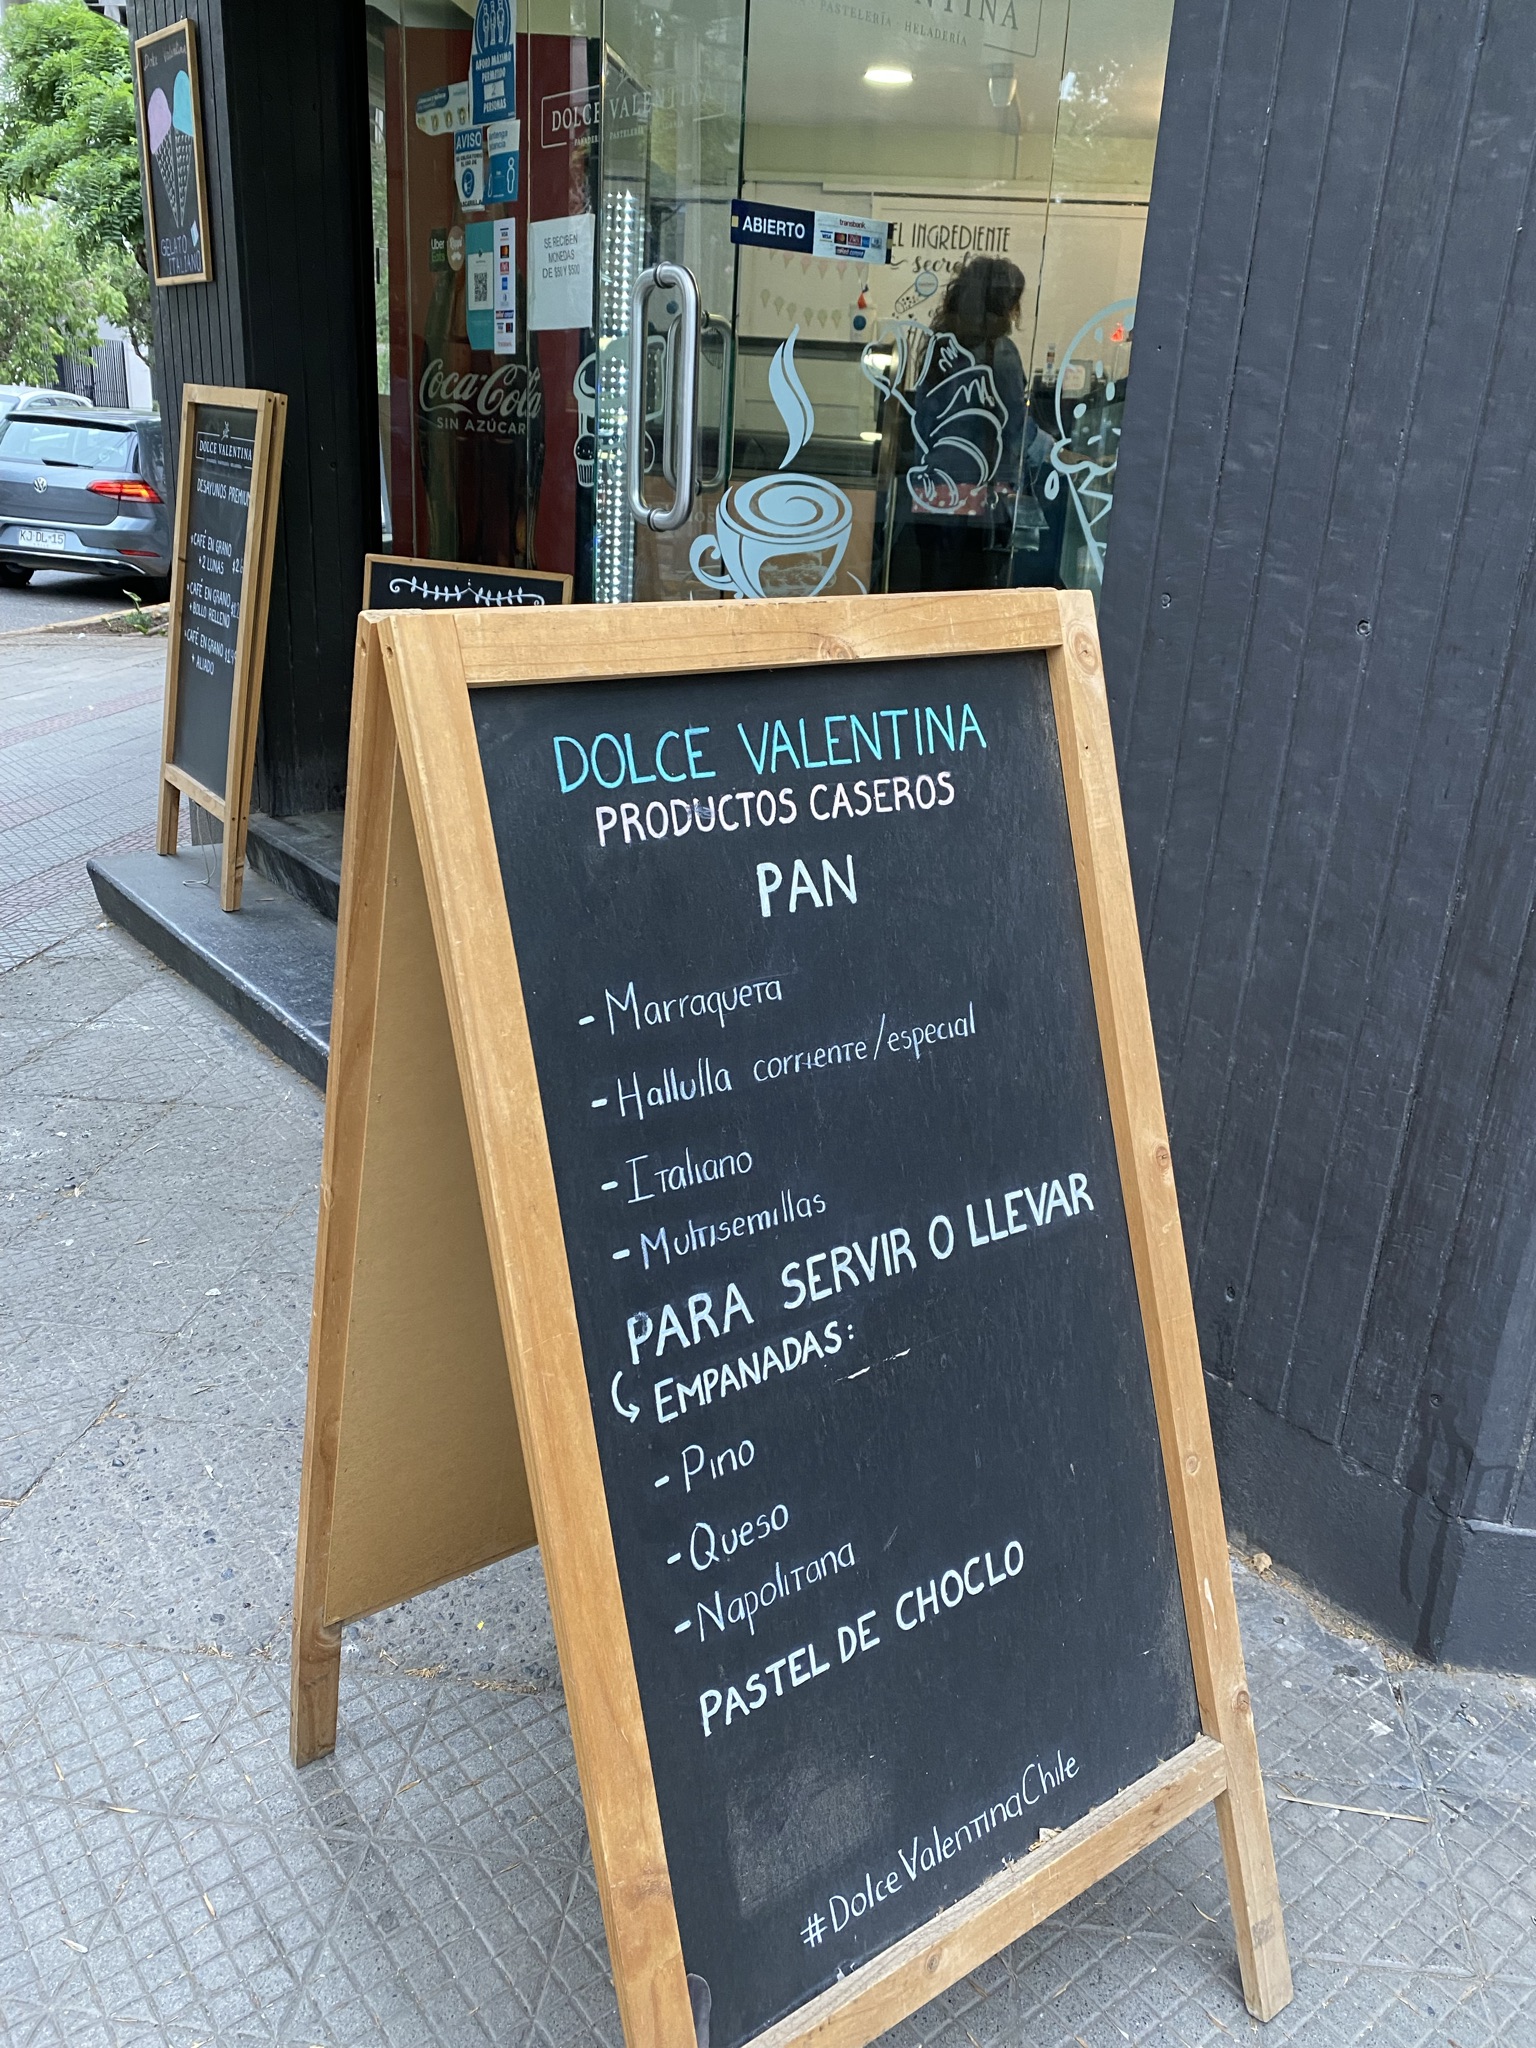 Dolce Valentina
GELATO
ITALIANO
DOLCE VALENTINA
DESAYUNOS PREMIUM
*CAFÉ EN GRANO
+ 2 LUNAS
*CAFÉ EN GRANO
+ BOLLO RELLENO
*CAFÉ EN GRANO
+ ALIADO
KJ DL-15
AFORO MÁXIMO
PERMITIDO
2
PERSONAS
AVISO
Uber
Eats
SE RECIBEN
MONEDAS
DE $50 Y $500
DOLCE VALENTINA
PASTELERÍA · HELADERÍA
ABIERTO
transbank
VISA
EL INGREDIENTE
secreto
Coca-Cola
SIN AZÚCAR
DOLCE VALENTINA
PRODUCTOS CASEROS
PAN
- Marraqueta
- Hallulla corriente/especial
- Italiano
- Multisemillas
PARA SERVIR O LLEVAR
EMPANADAS:
- Pino
- Queso
- Napolitana
PASTEL DE CHOCLO
#DolceValentinaChile